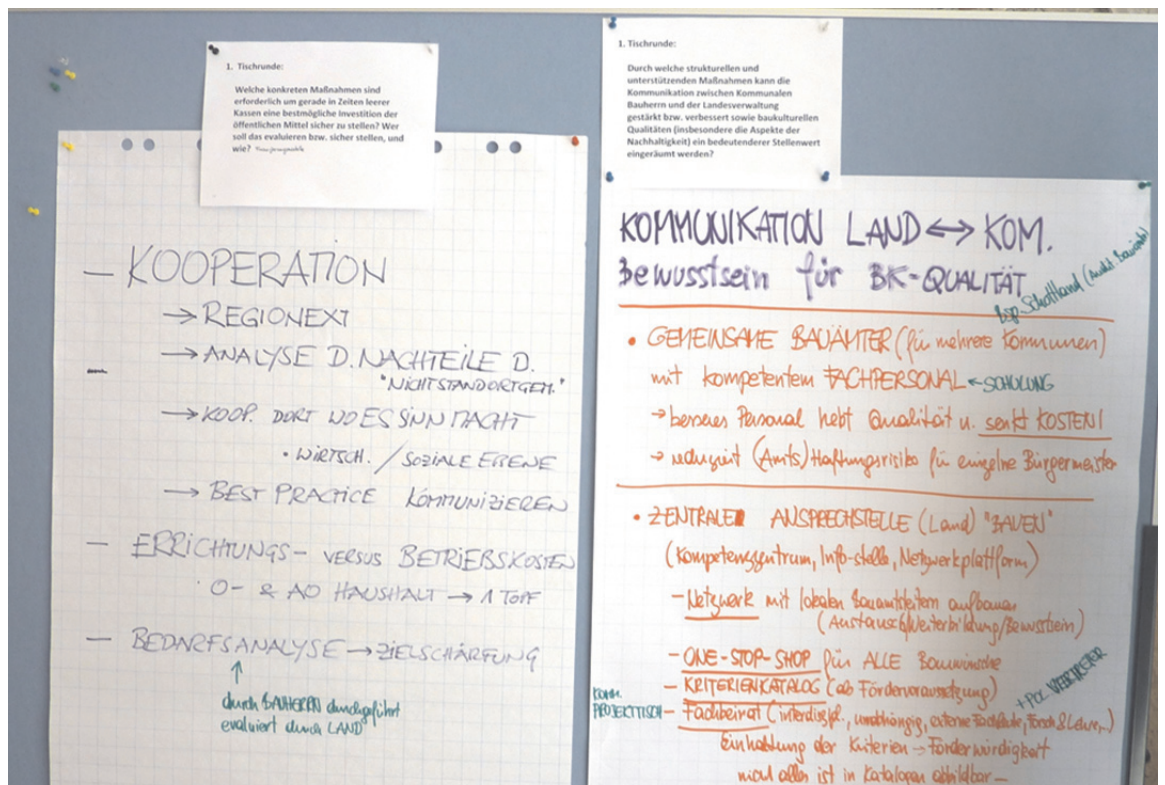 1. Tischrunde:
Welche konkreten Maßnahmen sind
erforderlich um gerade in Zeiten leerer
Kassen eine bestmögliche Investition der
öffentlichen Mittel sicher zu stellen? Wer
soll das evaluieren bzw. sicher stellen, und
wie?
— KOOPERATION
→ REGIONEXT
→ ANALYSE D. NACHTEILE D.
"NICHTSTANDORTGEM."
→ KOOP. DORT WO ES SINN MACHT
• WIRTSCH. / SOZIALE EBENE
→ BEST PRACTICE KOMMUNIZIEREN
— ERRICHTUNGS- VERSUS BETRIEBSKOSTEN
O- & AO HAUSHALT → 1 TOPF
— BEDARFSANALYSE → ZIELSCHÄRFUNG
↑
durch BAUHERRN durchgeführt
evaluiert durch LAND
1. Tischrunde:
Durch welche strukturellen und
unterstützenden Maßnahmen kann die
Kommunikation zwischen Kommunalen
Bauherrn und der Landesverwaltung
gestärkt bzw. verbessert sowie baukulturellen
Qualitäten (insbesondere die Aspekte der
Nachhaltigkeit) ein bedeutender Stellenwert
eingeräumt werden?
KOMMUNIKATION LAND ↔ KOM.
Bewusstsein für BK-QUALITÄT
Bsp. Schottland
• GEMEINSAME BAUÄMTER (für mehrere Kommunen)
mit kompetentem FACHPERSONAL ← SCHULUNG
→ besseres Personal hebt Qualität u. senkt KOSTEN!
→ reduziert (Amts)Haftungsrisiko für einzelne Bürgermeister
• ZENTRALE ANSPRECHSTELLE (Land) "BAUEN"
(Kompetenzzentrum, Info-stelle, Netzwerkplattform)
— Netzwerk mit lokalen Bauamtsleitern aufbauen
(Austausch/Weiterbildung/Bewusstsein)
— ONE-STOP-SHOP für ALLE Bauwünsche
— KRITERIENKATALOG (als Fördervoraussetzung)
+ POL. VERTRETER
KOMM.
PROJEKTTISCH — Fachbeirat (interdiszpl., unabhängig, externe Fachleute, Forsch & Lehre,..)
Einhaltung der Kriterien → Förderwürdigkeit
nicht alles ist in Katalogen abbildbar —